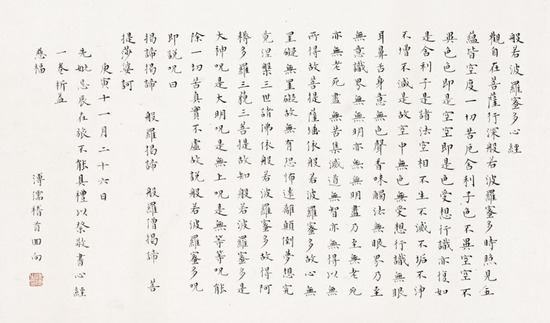 般若波羅蜜多心經
觀自在菩薩行深般若波羅蜜多時照見五
蘊皆空度一切苦厄舍利子色不異空空不
異色色即是空空即是色受想行識亦復如
是舍利子是諸法空相不生不滅不垢不淨
不增不減是故空中無色無受想行識無眼
耳鼻舌身意無色聲香味觸法無眼界乃至
無意識界無無明亦無無明盡乃至無老死
亦無老死盡無苦集滅道無智亦無得以無
所得故菩提薩埵依般若波羅蜜多故心無
罣礙無罣礙故無有恐怖遠離顛倒夢想究
竟涅槃三世諸佛依般若波羅蜜多故得阿
耨多羅三藐三菩提故知般若波羅蜜多是
大神呪是大明呪是無上呪是無等等呪能
除一切苦真實不虛故說般若波羅蜜多呪
即說呪曰
揭諦揭諦 般羅揭諦 般羅僧揭諦 菩
提莎婆訶
庚寅十一月二十六日
先妣忌辰在旅不能具禮以祭敬書心經
一卷祈益
慈福
溥濡稽首回向